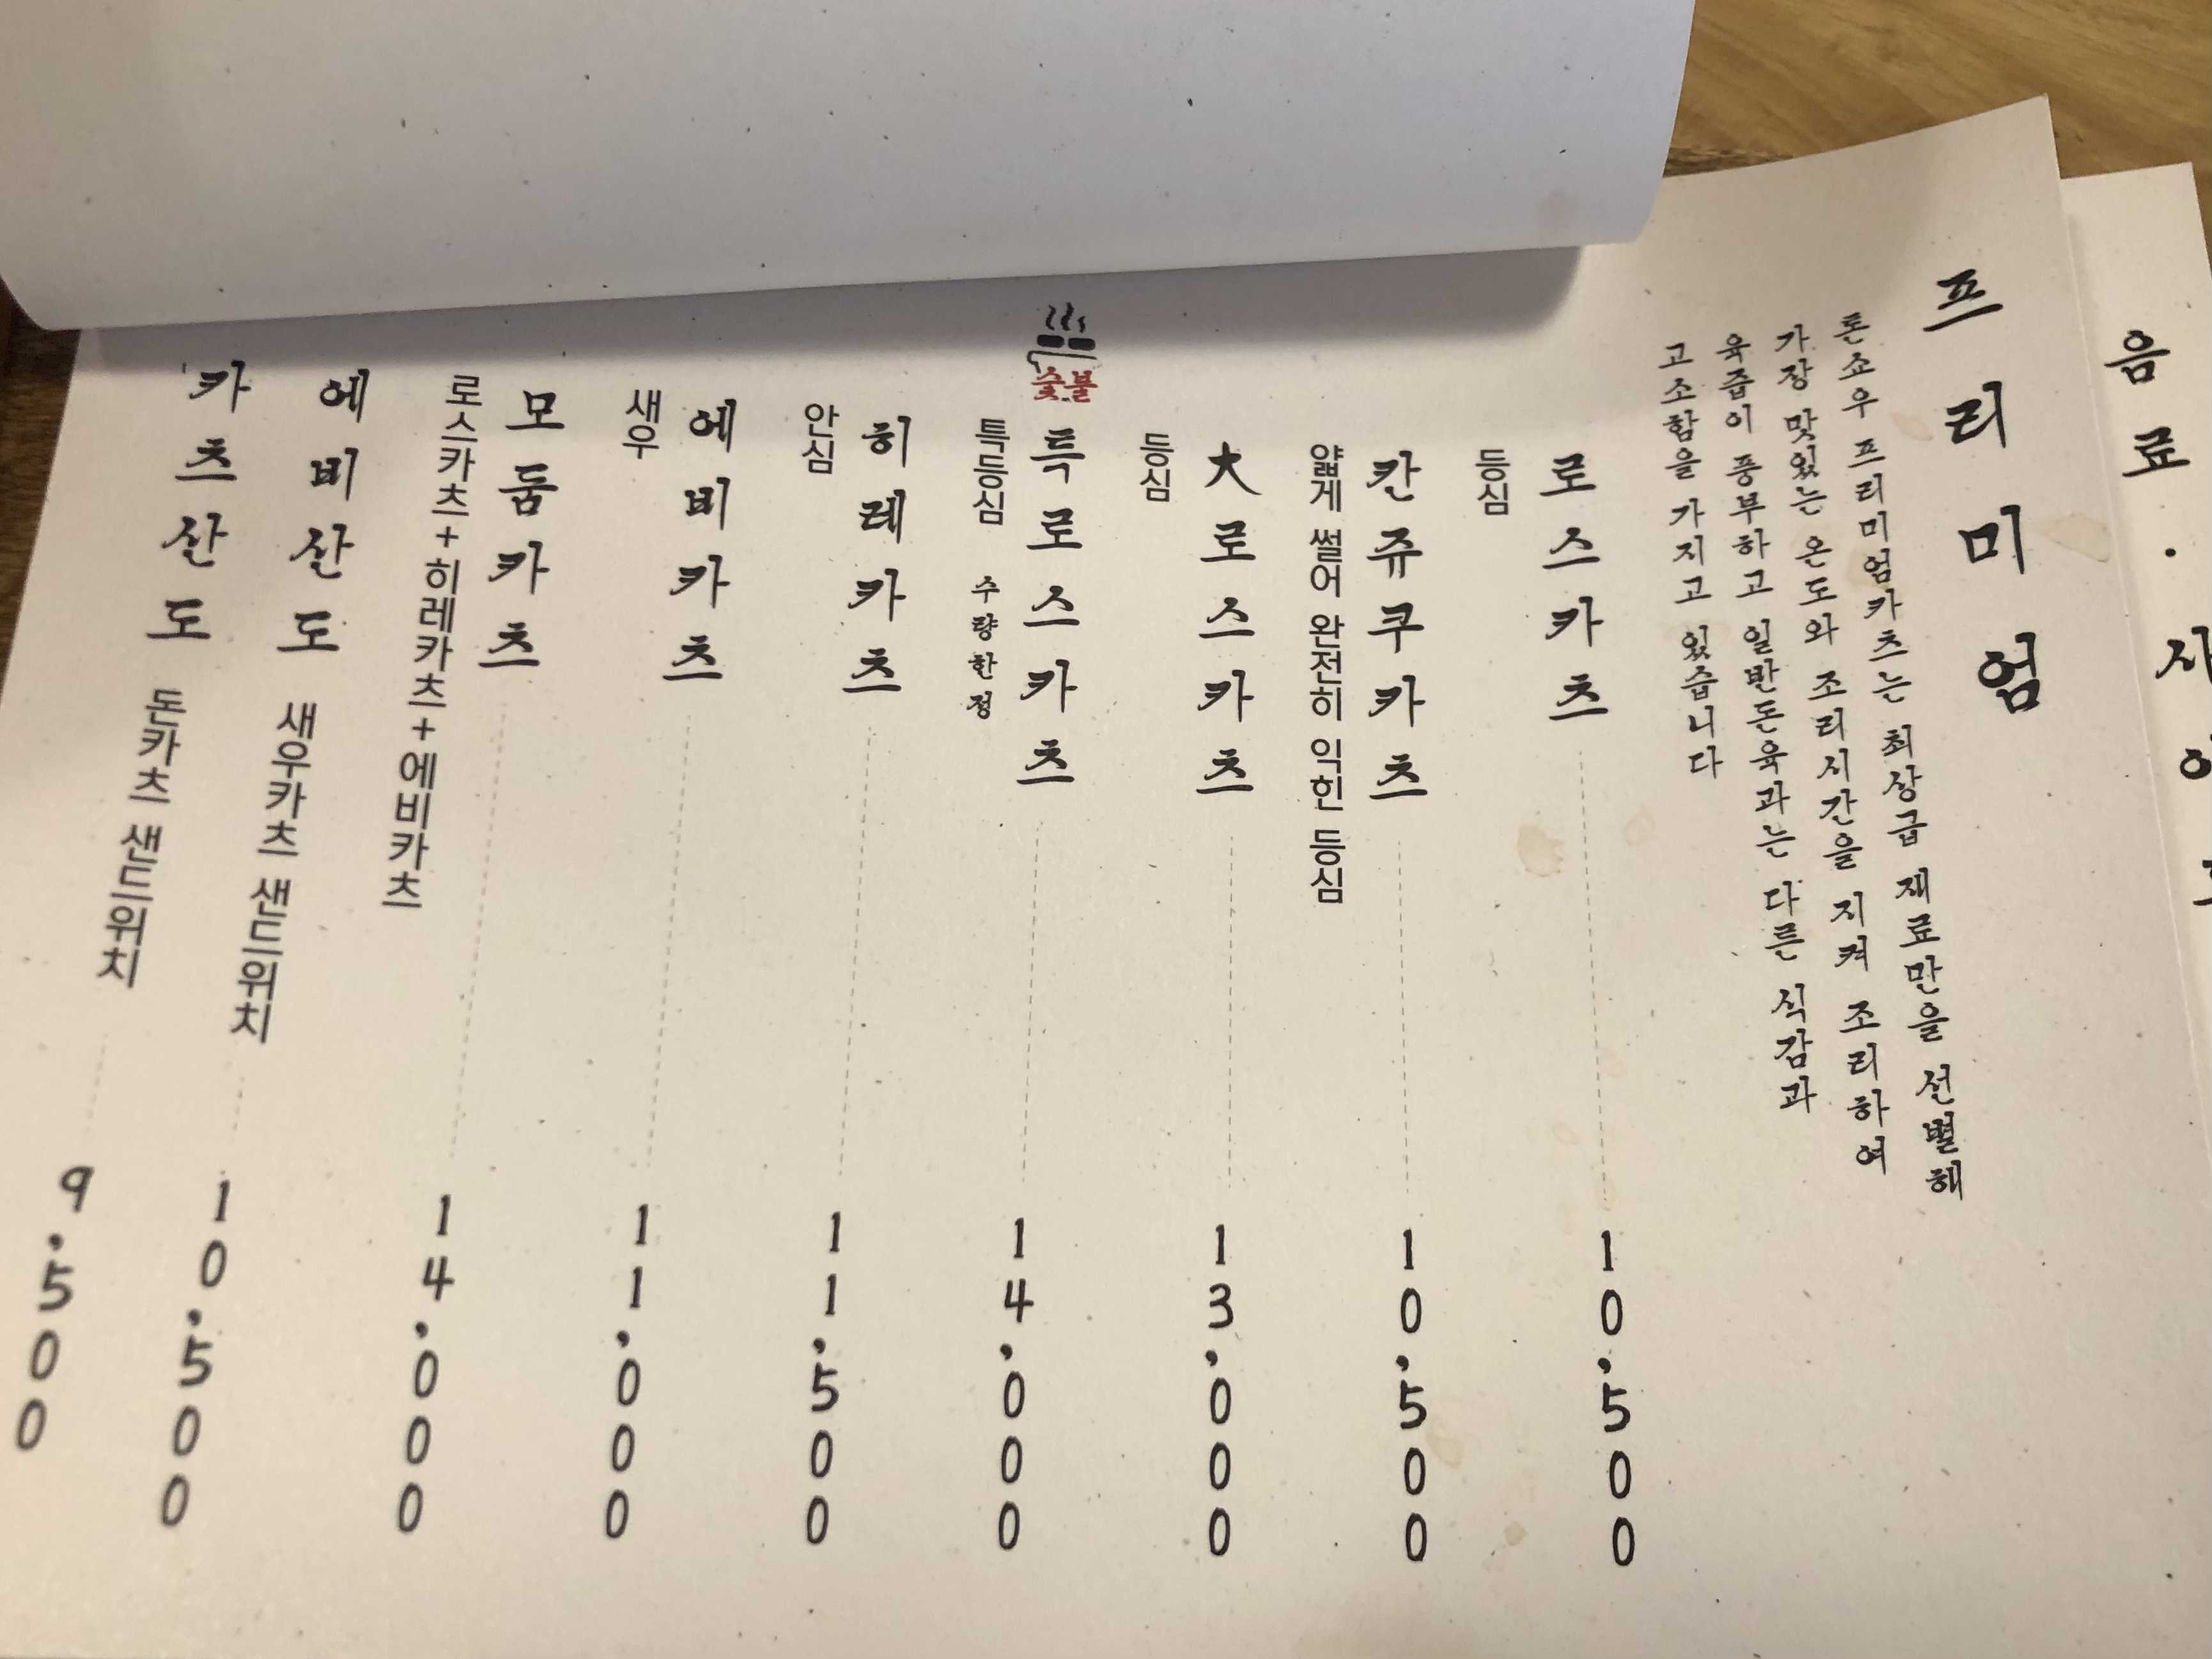 음료·사이
프리미엄
톤쇼우 프리미엄카츠는 최상급 재료만을 선별해
가장 맛있는 온도와 조리시간을 지켜 조리하여
육즙이 풍부하고 일반돈육과는 다른 식감과
고소함을 가지고 있습니다
로스카츠 10,500
등심
칸쥬쿠카츠 10,500
얇게 썰어 완전히 익힌 등심
大로스카츠 13,000
등심
숯불
특로스카츠 14,000
특등심 수량한정
히레카츠 11,500
안심
에비카츠 11,000
새우
모둠카츠 14,000
로스카츠+히레카츠+에비카츠
에비산도 새우카츠 샌드위치 10,500
카츠산도 돈카츠 샌드위치 9,500